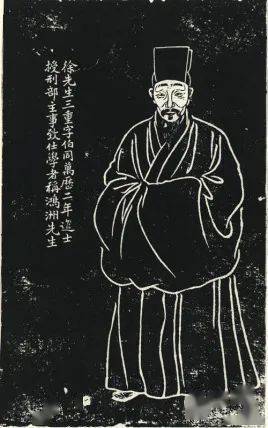 徐先生三重字伯同萬曆二年進士
授刑部主事致仕學者稱鴻洲先生